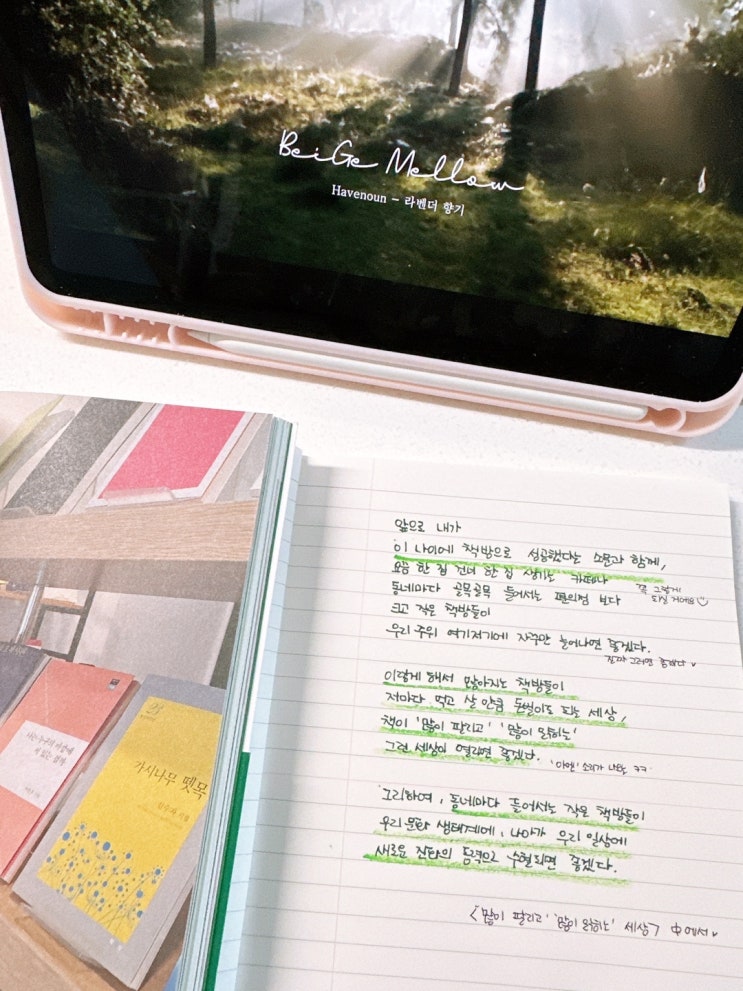 BeiGe Mellow
Havenoun – 라벤더 향기
가시나무 뗏목
앞으로 내가
이 나이에 책방으로 성공했다는 소문과 함께,
요즘 한 집 건너 한 집 생기는 카페나
동네마다 골목골목 들어서는 편의점 보다
꼭 그렇게
되실 거예요
크고 작은 책방들이
우리 주위 여기저기에 자꾸만 늘어나면 좋겠다.
진짜 그러면 좋겠다
이렇게 해서 많아지는 책방들이
저마다 먹고 살 만큼 돈벌이도 되는 세상,
책이 '많이 팔리고' '많이 읽히는'
그런 세상이 열리면 좋겠다.
'아멘' 소리가 나옴 ㅋㅋ
그리하여, 동네마다 들어서는 작은 책방들이
우리 문화 생태계에, 나아가 우리 일상에
새로운 진화의 동력으로 수혈되면 좋겠다.
<'많이 팔리고' '많이 읽히는' 세상> 中에서